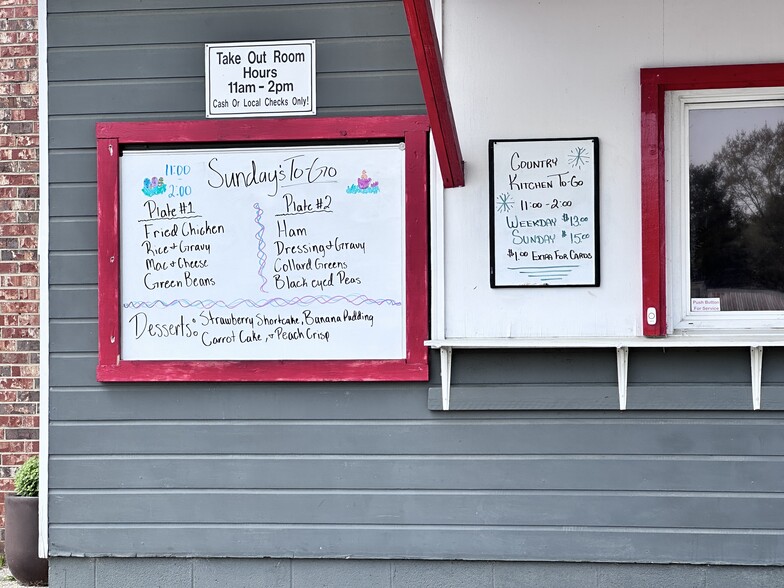 Take Out Room
Hours
11am - 2pm
Cash Or Local Checks Only!
11:00
- 2:00
Sunday's To-Go
Plate #1
Fried Chicken
Rice + Gravy
Mac + Cheese
Green Beans
Plate #2
Ham
Dressing + Gravy
Collard Greens
Black eyed Peas
Desserts: Strawberry Shortcake, Banana Pudding
Carrot Cake, + Peach Crisp
Country
Kitchen To-Go
11:00 - 2:00
Weekday $13.00
Sunday $15.00
$1.00 Extra For Cards
Push Button
For Service